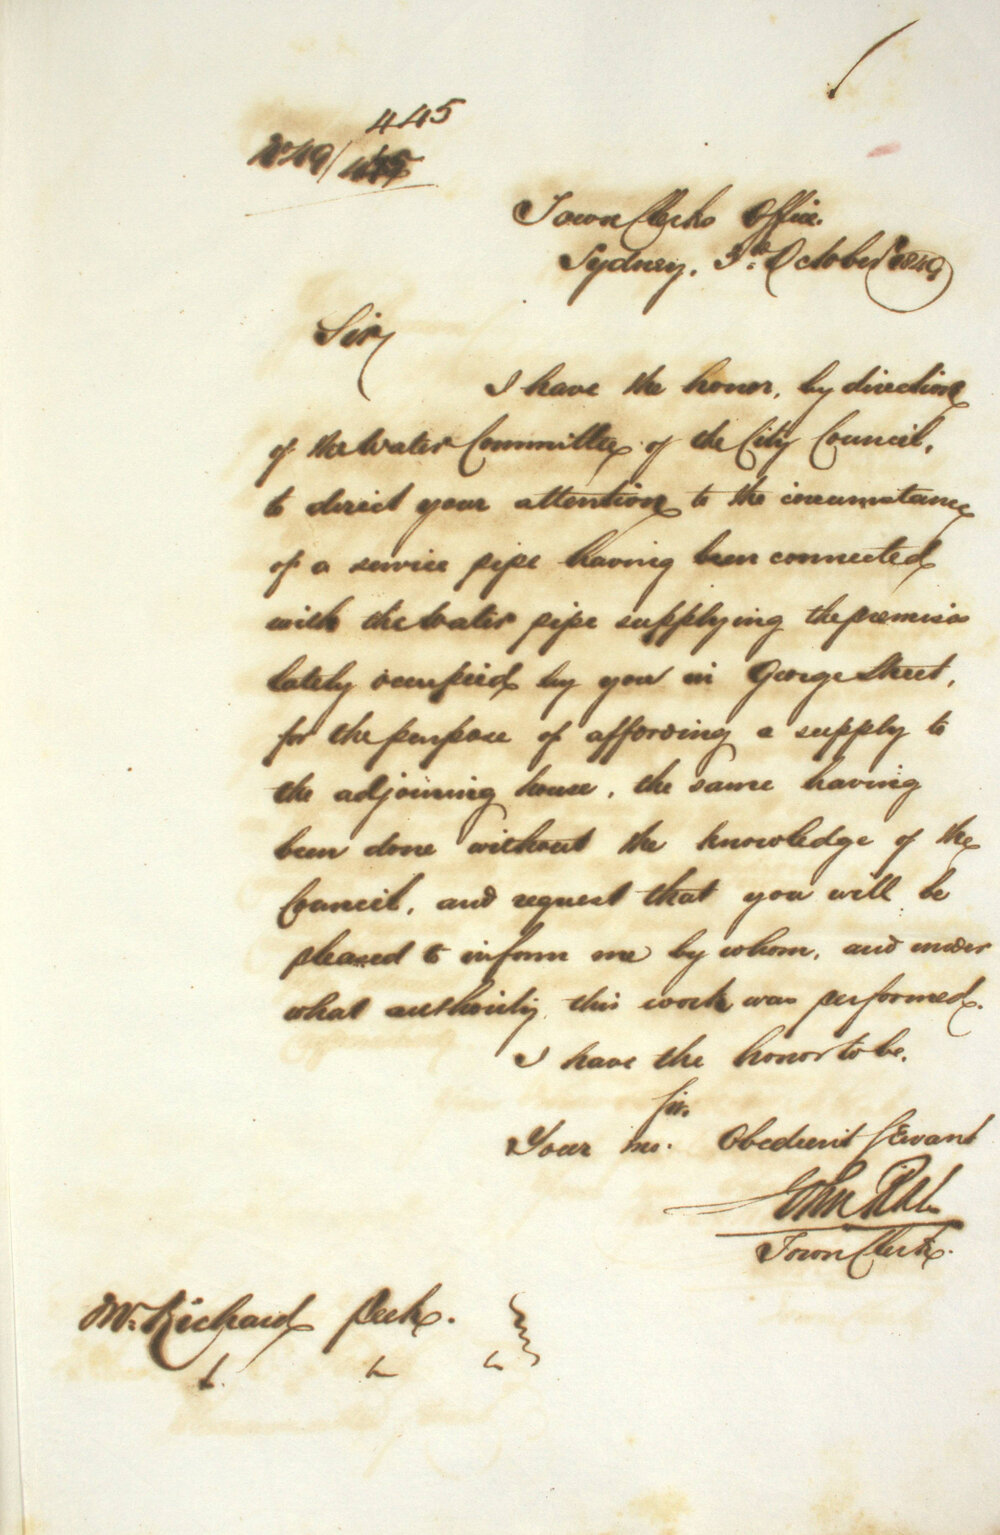 445
No 49/445
Town Clerks Office.
Sydney, 3rd October 1849
Sir,
I have the honor, by direction
of the Water Committee of the City Council,
to direct your attention to the circumstance
of a service pipe having been connected
with the Water pipe supplying the premises
lately occupied by you in George Street,
for the purpose of affording a supply to
the adjoining house, the same having
been done without the knowledge of the
Council, and request that you will be
pleased to inform me by whom, and under
what authority this work was performed.
I have the honor to be,
Sir,
Your mo. Obedient Servant
John Rule
Town Clerk.
Mr. Richard Peek.